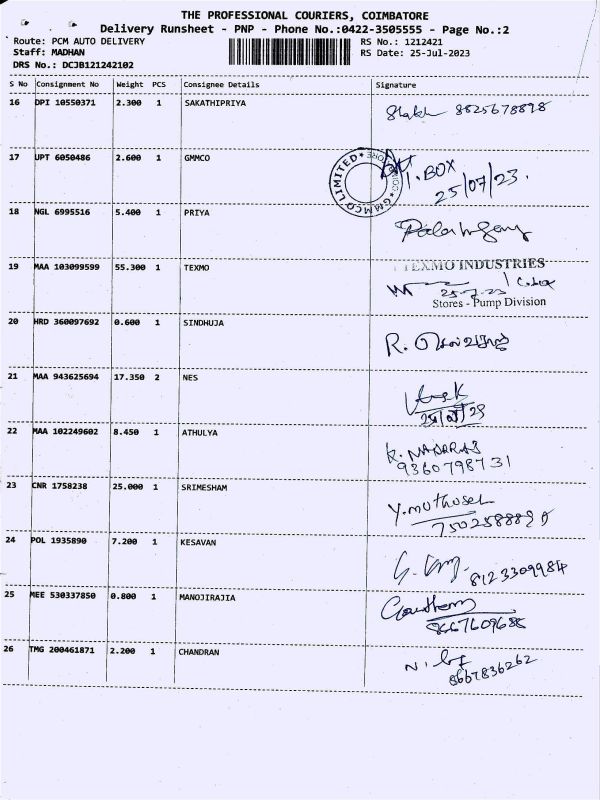 THE PROFESSIONAL COURIERS, COIMBATORE
Delivery Runsheet - PNP - Phone No.:0422-3505555 - Page No.:2
Route: PCM AUTO DELIVERY RS No.: 1212421
Staff: MADHAN RS Date: 25-Jul-2023
DRS No.: DCJB121242102
S No Consignment No Weight PCS Consignee Details Signature
16 DPI 10550371 2.300 1 SAKATHIPRIYA 8825678898
17 UPT 6050486 2.600 1 GMMCO 1. BOX
GMMCO LIMITED
25/07/23.
18 NGL 6995516 5.400 1 PRIYA
19 MAA 103099599 55.300 1 TEXMO TEXMO INDUSTRIES
Stores - Pump Division
20 HRD 360097692 0.600 1 SINDHUJA R.
21 MAA 943625694 17.350 2 NES
22 MAA 102249602 8.450 1 ATHULYA
9360798731
23 CNR 1758238 25.000 1 SRIMESHAM
24 POL 1935890 7.200 1 KESAVAN 8123309984
25 MEE 530337850 0.800 1 MANOJIRAJIA
8667609688
26 TMG 200461871 2.200 1 CHANDRAN
8667836262